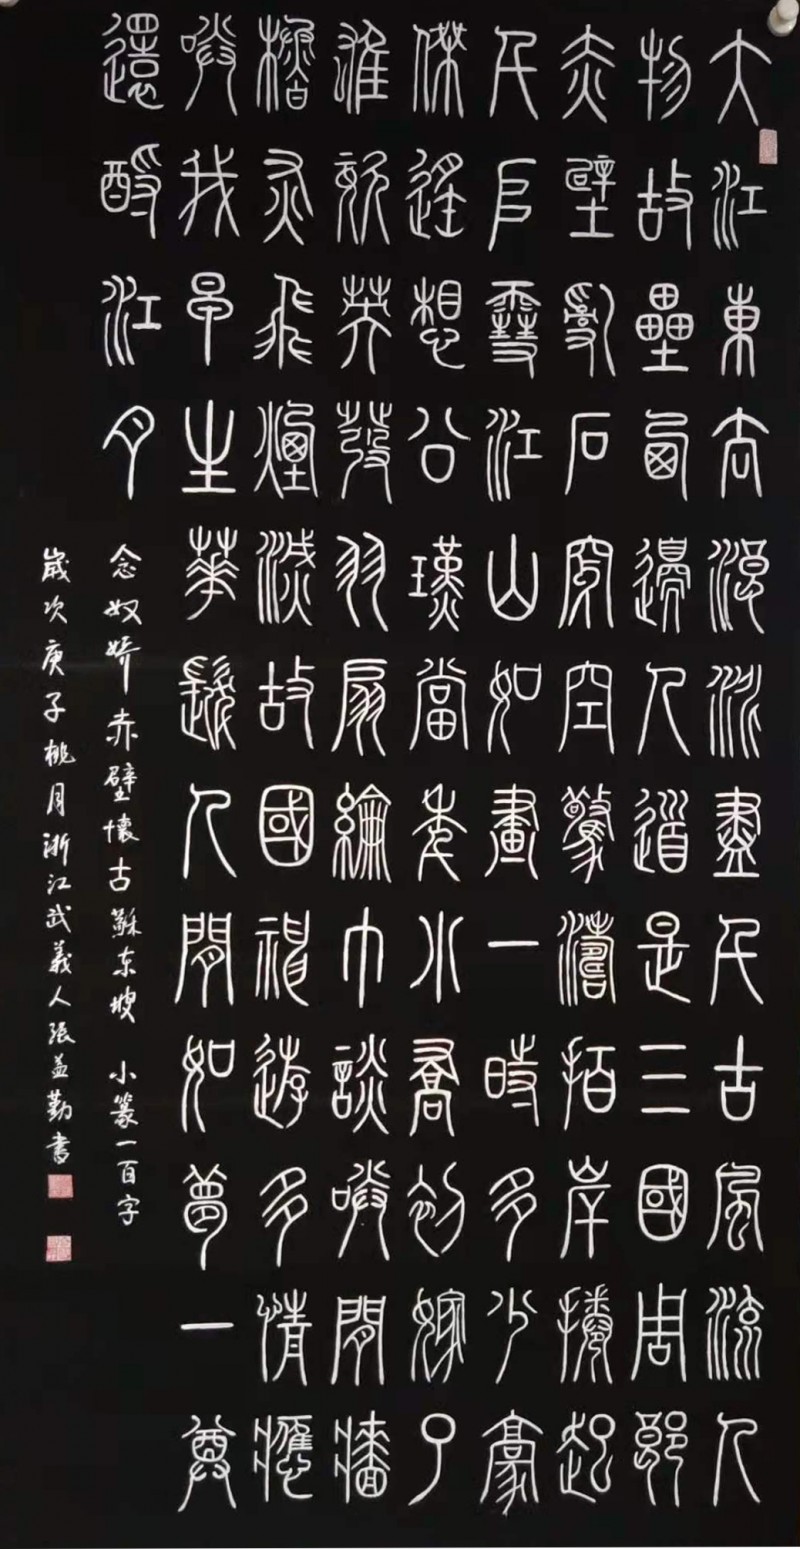 大江東去浪淘盡千古風流人
物故壘西邊人道是三國周郎
赤壁亂石穿空驚濤拍岸捲起
千堆雪江山如畫一時多少豪
傑遙想公瑾當年小喬初嫁了
雄姿英發羽扇綸巾談笑間檣
櫓灰飛煙滅故國神遊多情應
笑我早生華髮人間如夢一尊
還酹江月
念奴嬌赤壁懷古蘇东坡 小篆一百字
歲次庚子桃月浙江武義人張益勤書